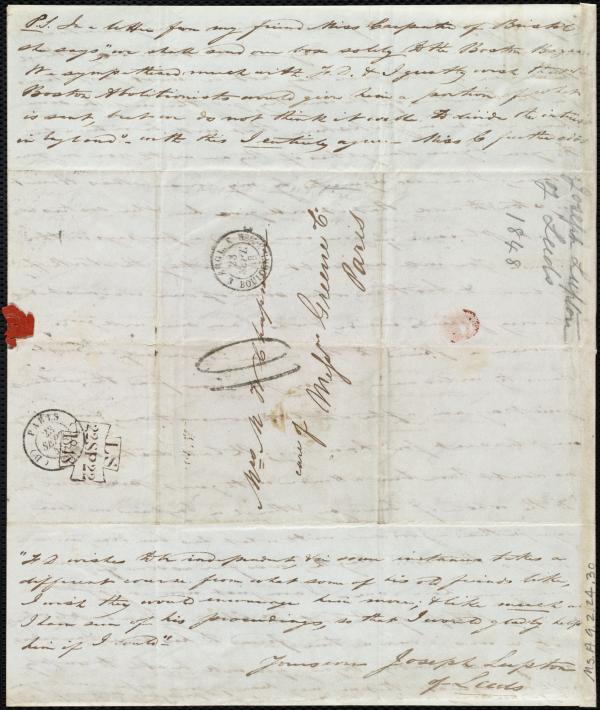 P.S. In a letter from my friend Miss Carpenter of Bristol
she says, "we shall send our box solely to the Boston Bazaar
We sympathised much with F. D. & I greatly wish the
Boston Abolitionists would give him a portion of what
is sent, but we do not think it well to divide the interest
in England" – with this I entirely agree – Miss C further says
Joseph Lupton
of Leeds
1848
Mrs M
care of Messrs Greene &
Paris
10
BOULOGNE
PARIS
23
LS
22 SP 22
1848
"F D wishes to be independent, & in some instances takes a
different course from what some of his old friends like,
I wish they would encourage him more, & like much
I have seen of his proceedings, so that I would gladly help
him if I could"
Yours ever Joseph Lupton
of Leeds
Ms. A. 9. 2. 24. 30